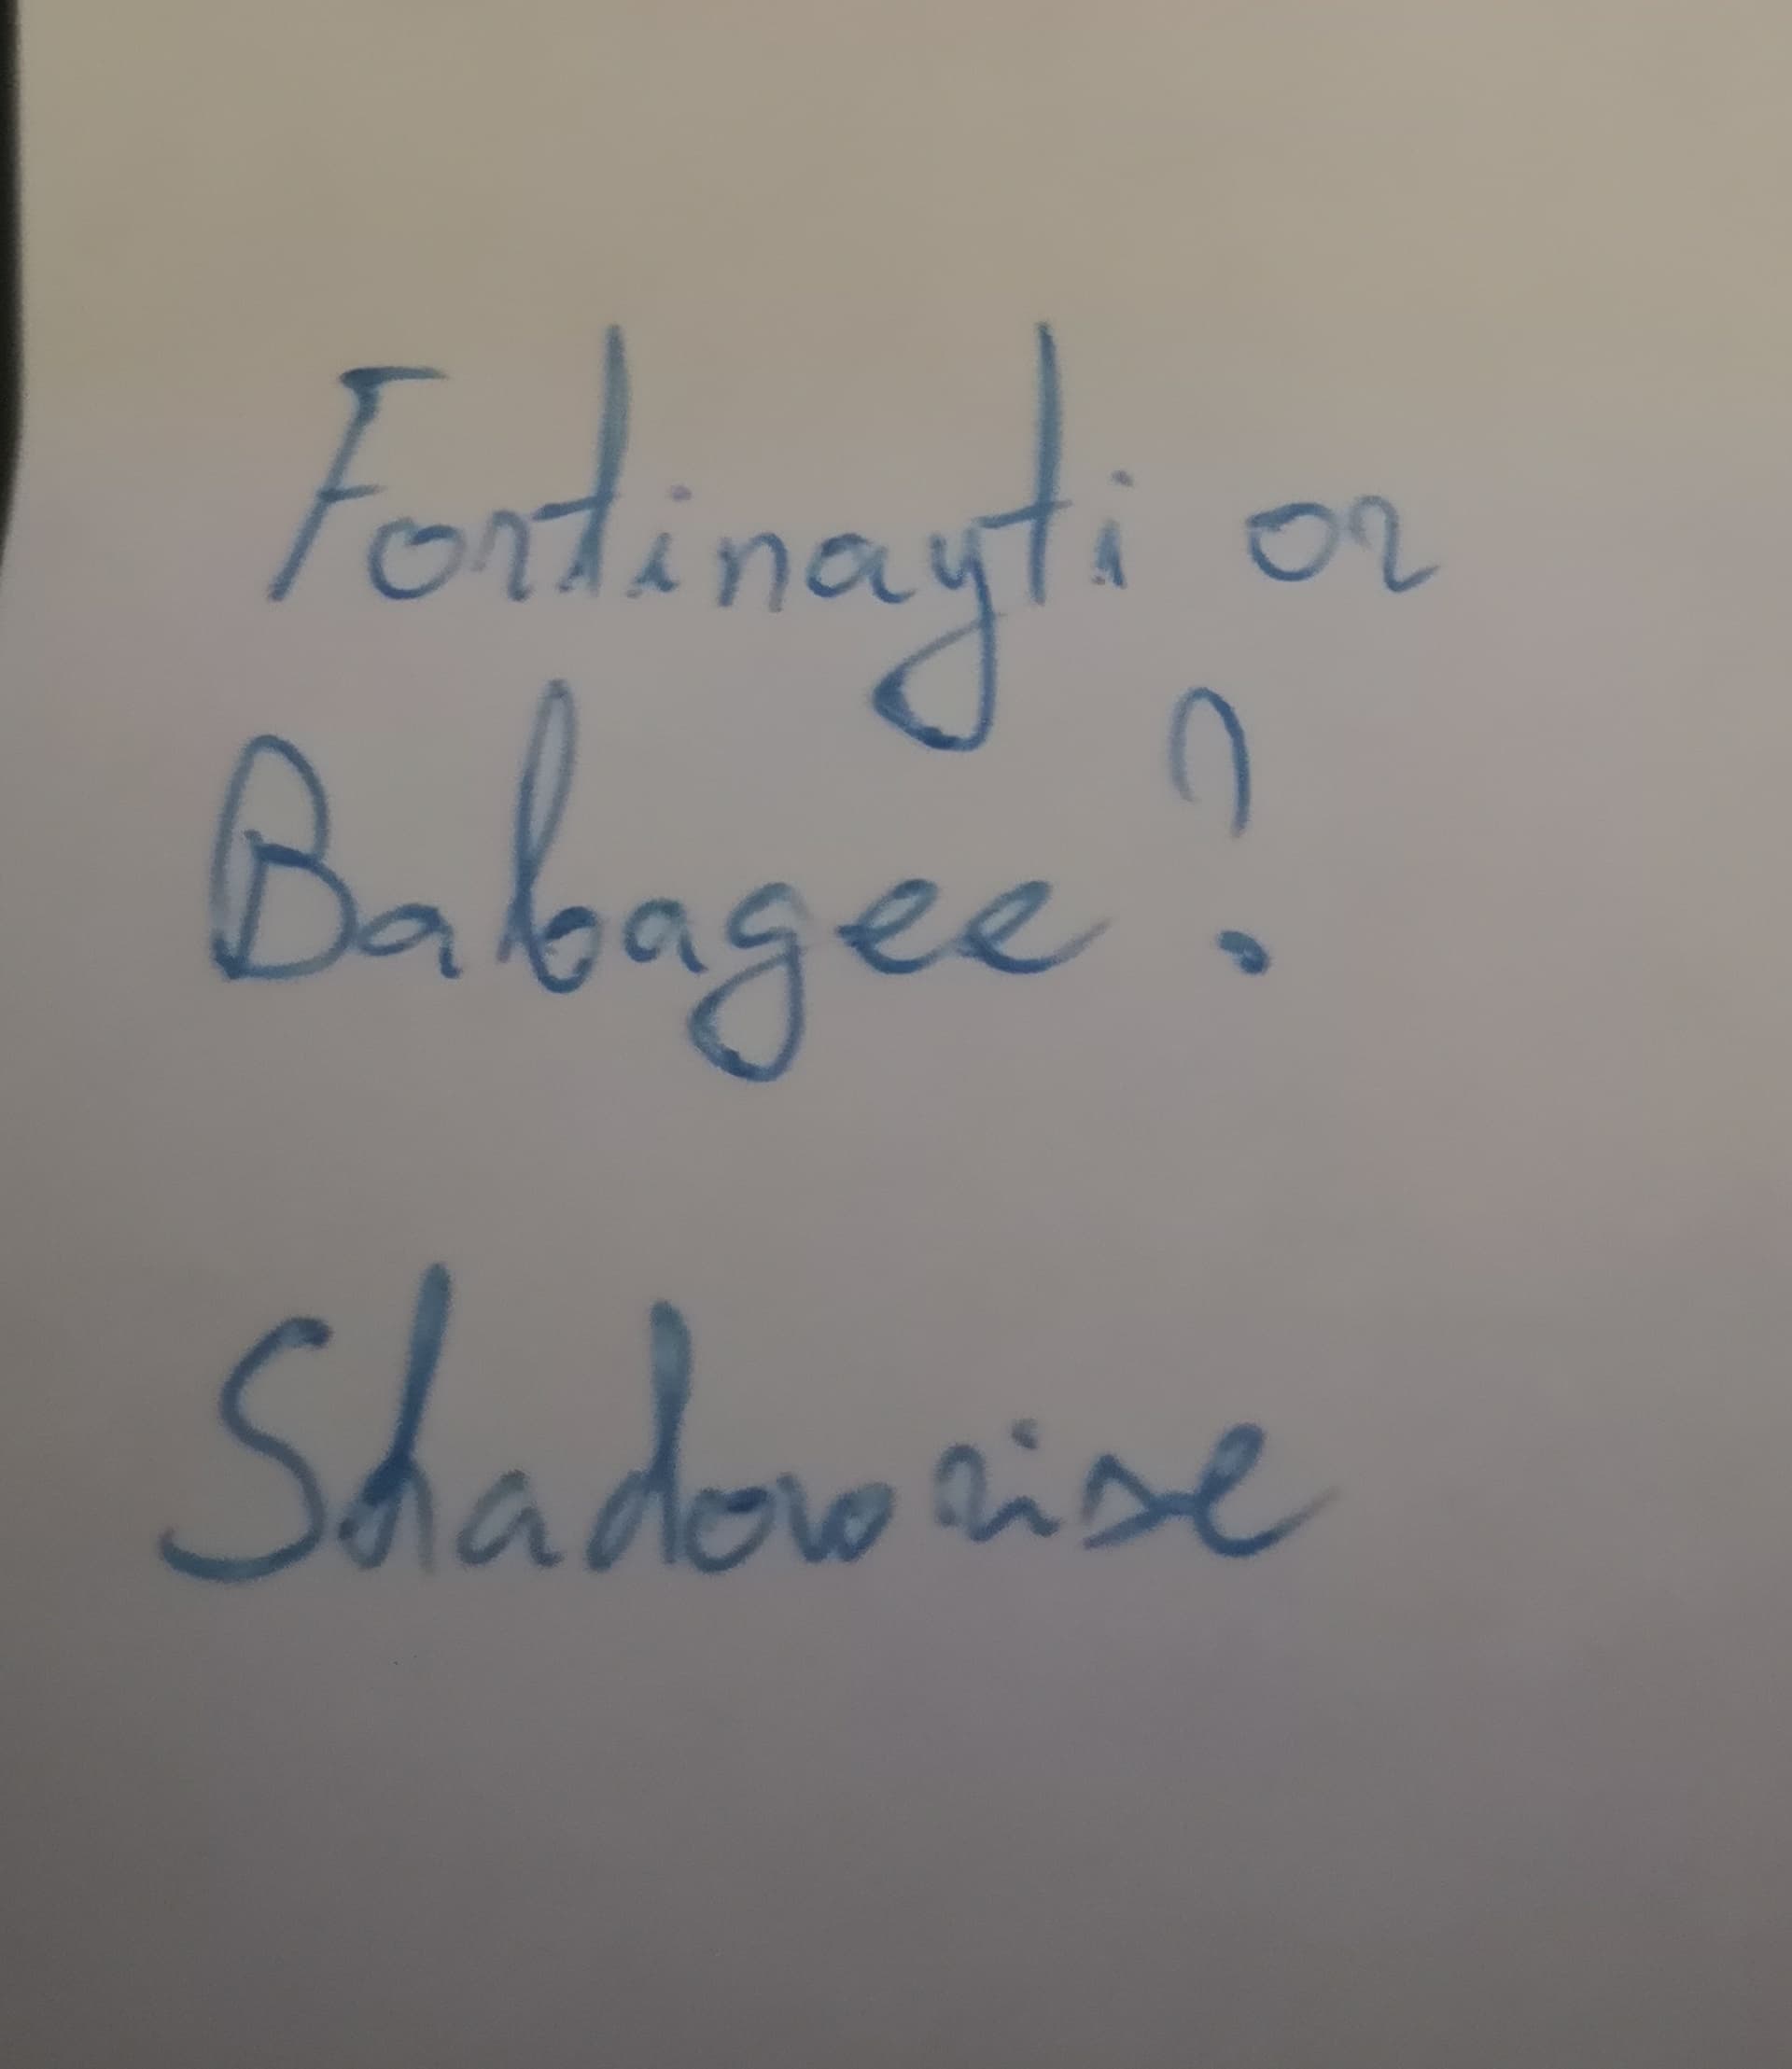 Fortinayti or
Babagee?
Shadowrise